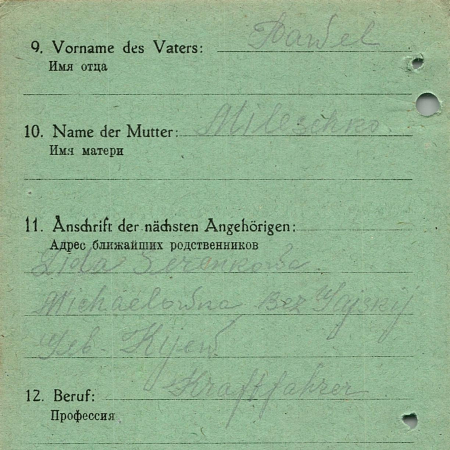 9. Vorname des Vaters: Pawel
Имя отца
10. Name der Mutter: Mileschko
Имя матери
11. Anschrift der nächsten Angehörigen:
Адрес ближайших родственников
Lida Serenkowa
Michaelowna Bez
Geb. Kyew
12. Beruf: Kraftfahrer
Профессия